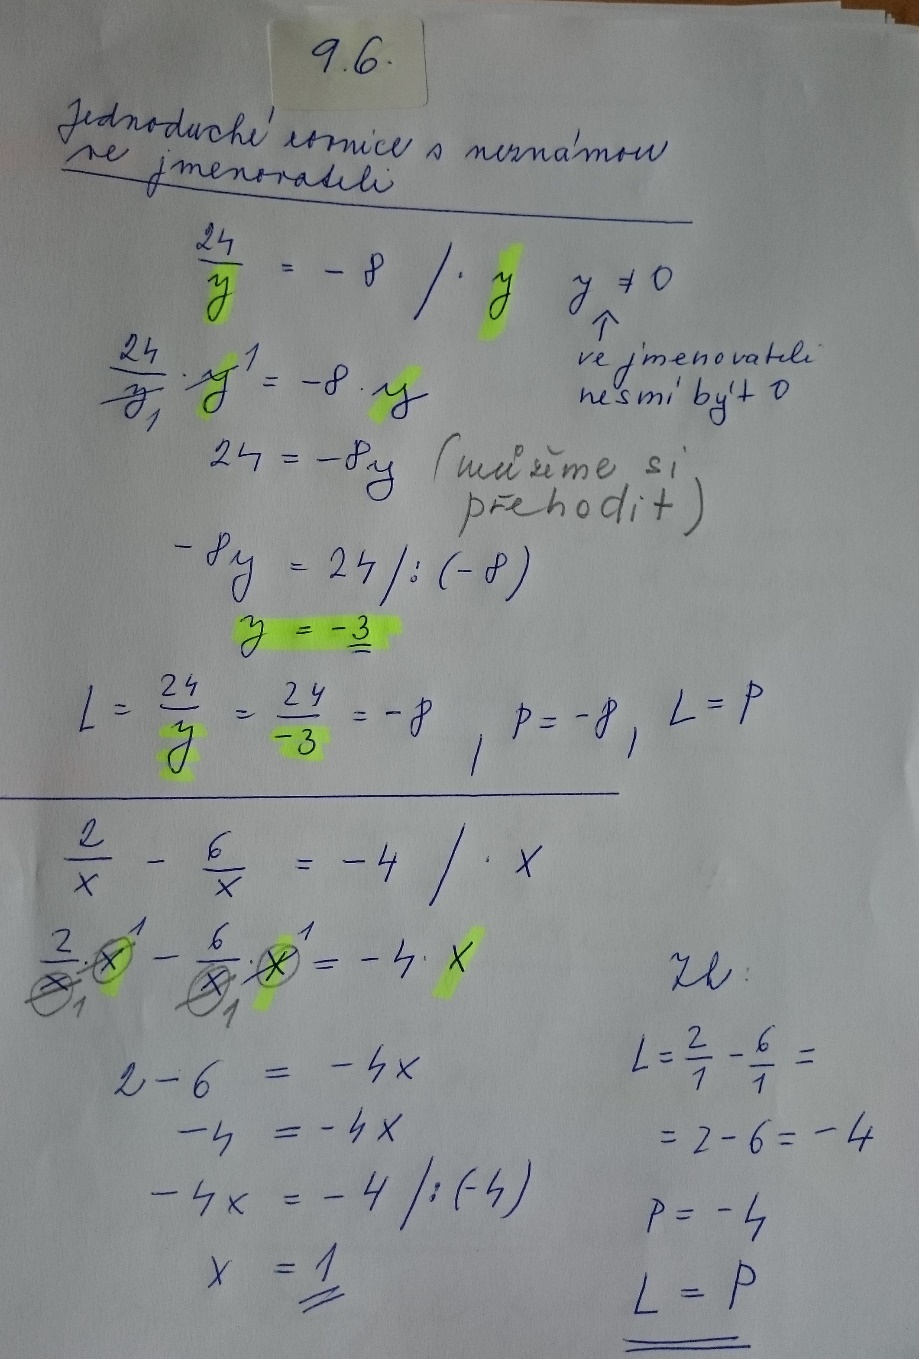 9.6.
Jednoduché rovnice s neznámou
ve jmenovateli
24/y = -8 /· y   y ≠ 0
↑
ve jmenovateli
nesmí být 0
24/y₁ · y¹ = -8 · y
24 = -8y (můžeme si
přehodit)
-8y = 24 /:(-8)
y = -3
L = 24/y = 24/-3 = -8 , P = -8, L = P
2/x - 6/x = -4 /· x
2/x₁ · x¹ - 6/x₁ · x¹ = -4 · x
2-6 = -4x
-4 = -4x
-4x = -4 /:(-4)
x = 1
Zk:
L = 2/1 - 6/1 =
= 2-6 = -4
P = -4
L = P